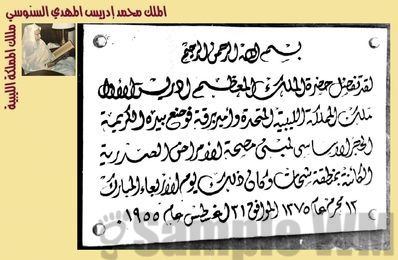 الملك محمد إدريس المهدي السنوسي
ملك المملكة الليبية
بسم الله الرحمن الرحيم
لقد تفضل حضرة الملك المعظم ادريس الأول
ملك المملكة الليبية المتحدة وأمير برقة فوضع بيده الكريمة
الحجر الأساسي لمبنى مصحة الأمراض الصدرية
الكائنة بمنطقة شحات وكان ذلك يوم الأربعاء المبارك
١٢ محرم عام ١٣٧٥ الموافق ٣١ أغسطس عام ١٩٥٥.
Sample WM